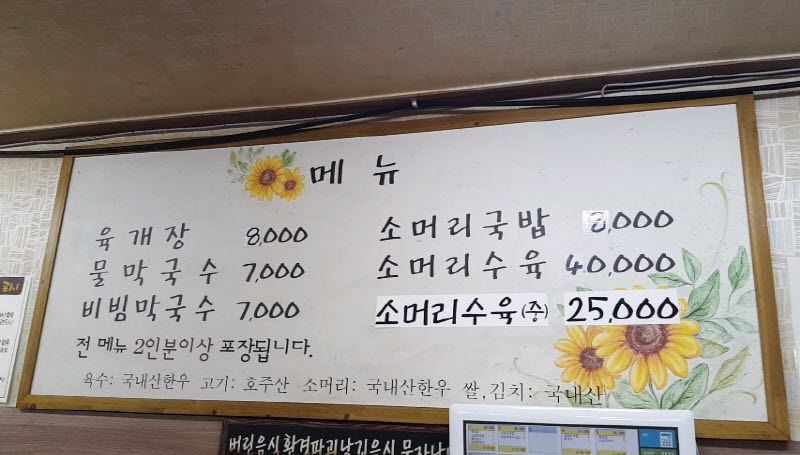 메뉴
육개장 8,000
물막국수 7,000
비빔막국수 7,000
소머리국밥 8,000
소머리수육 40,000
소머리수육(중) 25,000
전 메뉴 2인분이상 포장됩니다.
육수: 국내산한우 고기: 호주산 소머리: 국내산한우 쌀,김치: 국내산
버린음식 환경파괴 남긴음식